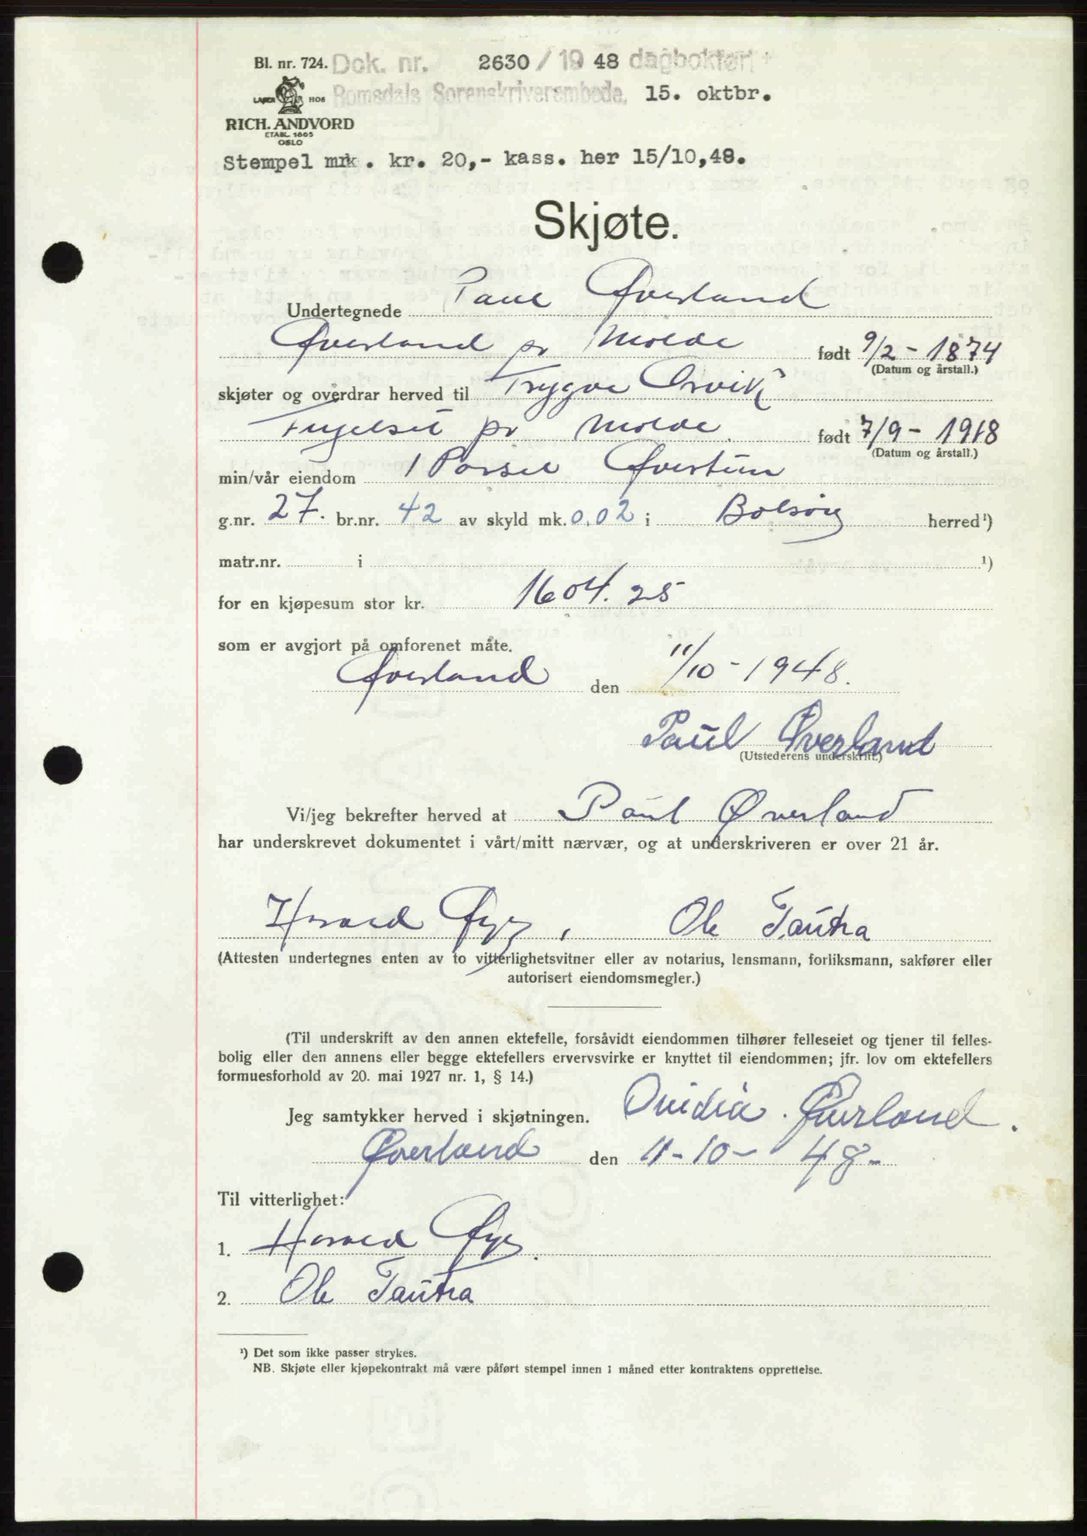 Bl. nr. 724. Dok. nr. 2630 / 19 48 dagbokført
LAGER HOS Romsdals Sorenskriverembede, 15. oktbr.
RICH. ANDVORD
ETABL. 1865
OSLO
Stempel mrk. kr. 20,- kass. her 15/10,48.
Skjøte.
Undertegnede Paul Øverland
Øverland pr Molde født 9/2 - 1874
(Datum og årstall.)
skjøter og overdrar herved til Trygve Orvik
pr Molde. født 7/9 - 1918
(Datum og årstall.)
min/vår eiendom 1 Parsel
g.nr. 27. br.nr. 42 av skyld mk. 0,02 i Bolsøy herred¹)
matr.nr. i ¹)
for en kjøpesum stor kr. 1604.25
som er avgjort på omforenet måte.
Øverland den 11/10 - 1948.
Paul Øverland
(Utstederens underskrift.)
Vi/jeg bekrefter herved at Paul Øverland
har underskrevet dokumentet i vårt/mitt nærvær, og at underskriveren er over 21 år.
Ole Tautra
(Attesten undertegnes enten av to vitterlighetsvitner eller av notarius, lensmann, forliksmann, sakfører eller
autorisert eiendomsmegler.)
(Til underskrift av den annen ektefelle, forsåvidt eiendommen tilhører felleseiet og tjener til felles-
bolig eller den annens eller begge ektefellers ervervsvirke er knyttet til eiendommen; jfr. lov om ektefellers
formuesforhold av 20. mai 1927 nr. 1, § 14.)
Jeg samtykker herved i skjøtningen. Ovidia Øverland.
Øverland den 11-10- 48-
Til vitterlighet:
1.
2. Ole Tautra
¹) Det som ikke passer strykes.
NB. Skjøte eller kjøpekontrakt må være påført stempel innen 1 måned etter kontraktens opprettelse.